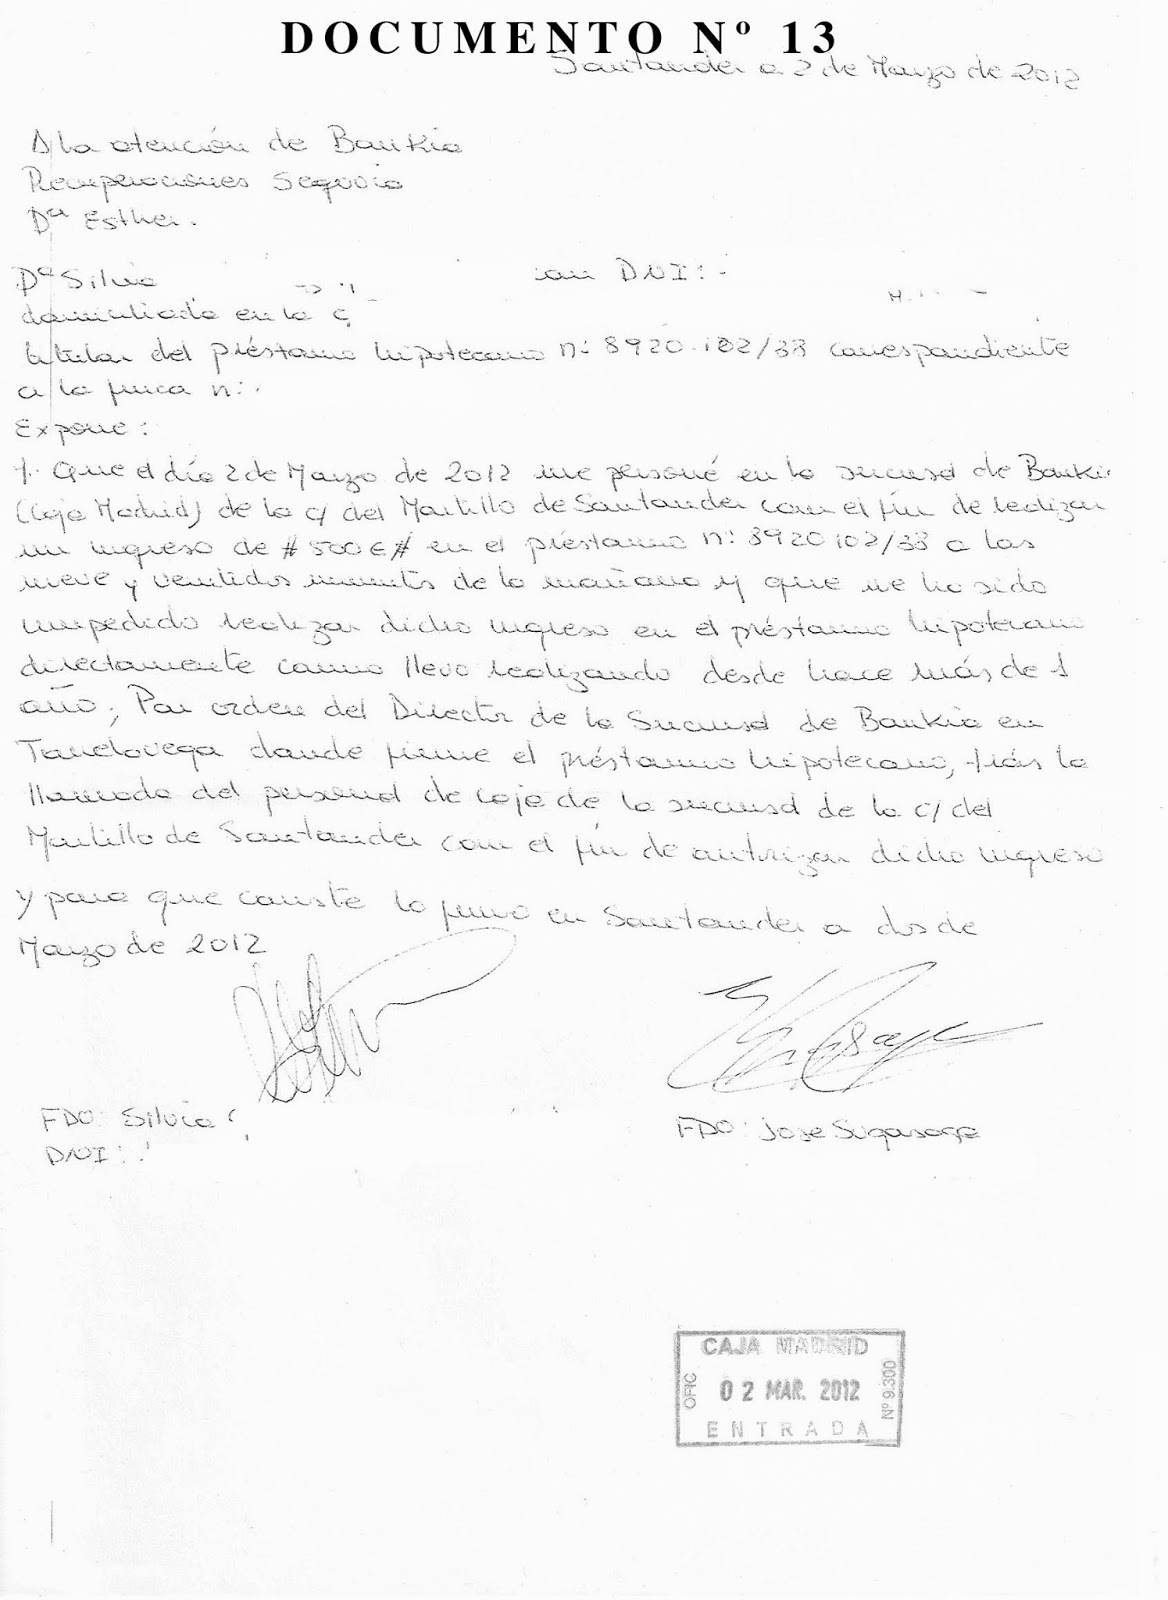 DOCUMENTO Nº 13
Santander a 2 de Marzo de 2012
A la atención de Bankia
Recuperaciones Segovia
Dª Esther.
Dª Silvia con DNI:
domiciliada en la c/
titular del préstamo hipotecario nº 8920.102/33 correspondiente
a la finca nº
Expone:
1. Que el día 2 de Marzo de 2012 me personé en la sucursal de Bankia
(Caja Madrid) de la c/ del Martillo de Santander con el fin de realizar
un ingreso de #500€# en el préstamo nº 8920 102/33 a las
nueve y veintidos minutos de la mañana y que me ha sido
impedido realizar dicho ingreso en el préstamo hipotecario
directamente como llevo realizando desde hace más de 1
año; Por orden del Director de la Sucursal de Bankia en
Torrelavega donde firme el préstamo hipotecario, trás la
llamada del personal de caja de la sucursal de la c/ del
Martillo de Santander con el fin de autorizar dicho ingreso
y para que conste lo firmo en Santander a dos de
Marzo de 2012
FDO: Silvia
DNI:
FDO: Jose Sugasaga
CAJA MADRID
OFIC
02 MAR. 2012
Nº 9.300
ENTRADA